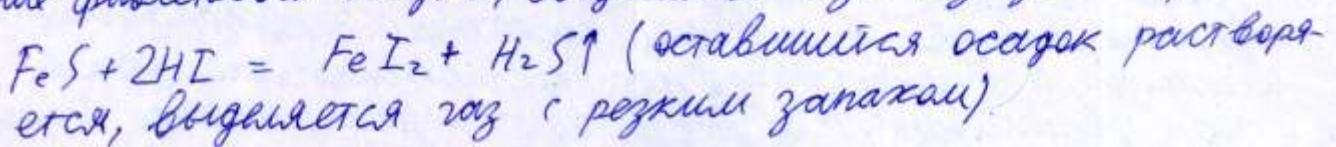 FeS + 2HI = FeI₂ + H₂S↑ (оставшийся осадок растворя-
ется, выделяется газ с резким запахом)